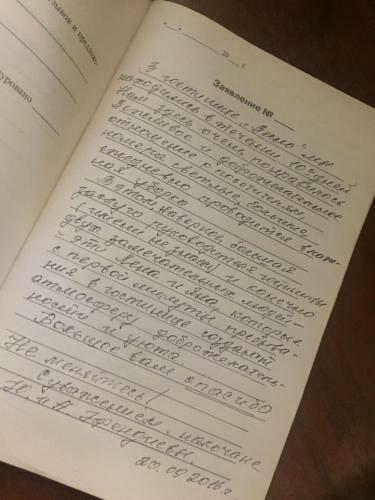 ывов и предлож
уровано
« » 20 г.
Заявление №
В гостинице с
находились в течении 10 дней
Нам здесь очень понравилось
Вежливое и доброжелательное
отношение к посетителям,
номера светлые, большие,
ежедневно проводится влаж-
ная уборка.
В этом наверное большая
заслуга руководства гостиницы
(к сожал не знаем) и конечно
двух замечательных людей -
- это Лена и Яна, которые
с первой минуты пребыва-
ния в гостинице создают
атмосферу доброжелатель-
ности и уюта.
Большое вам спасибо
Не меняйтесь!
С уважением. нальчане
Н. и А
20.09.2016 г.